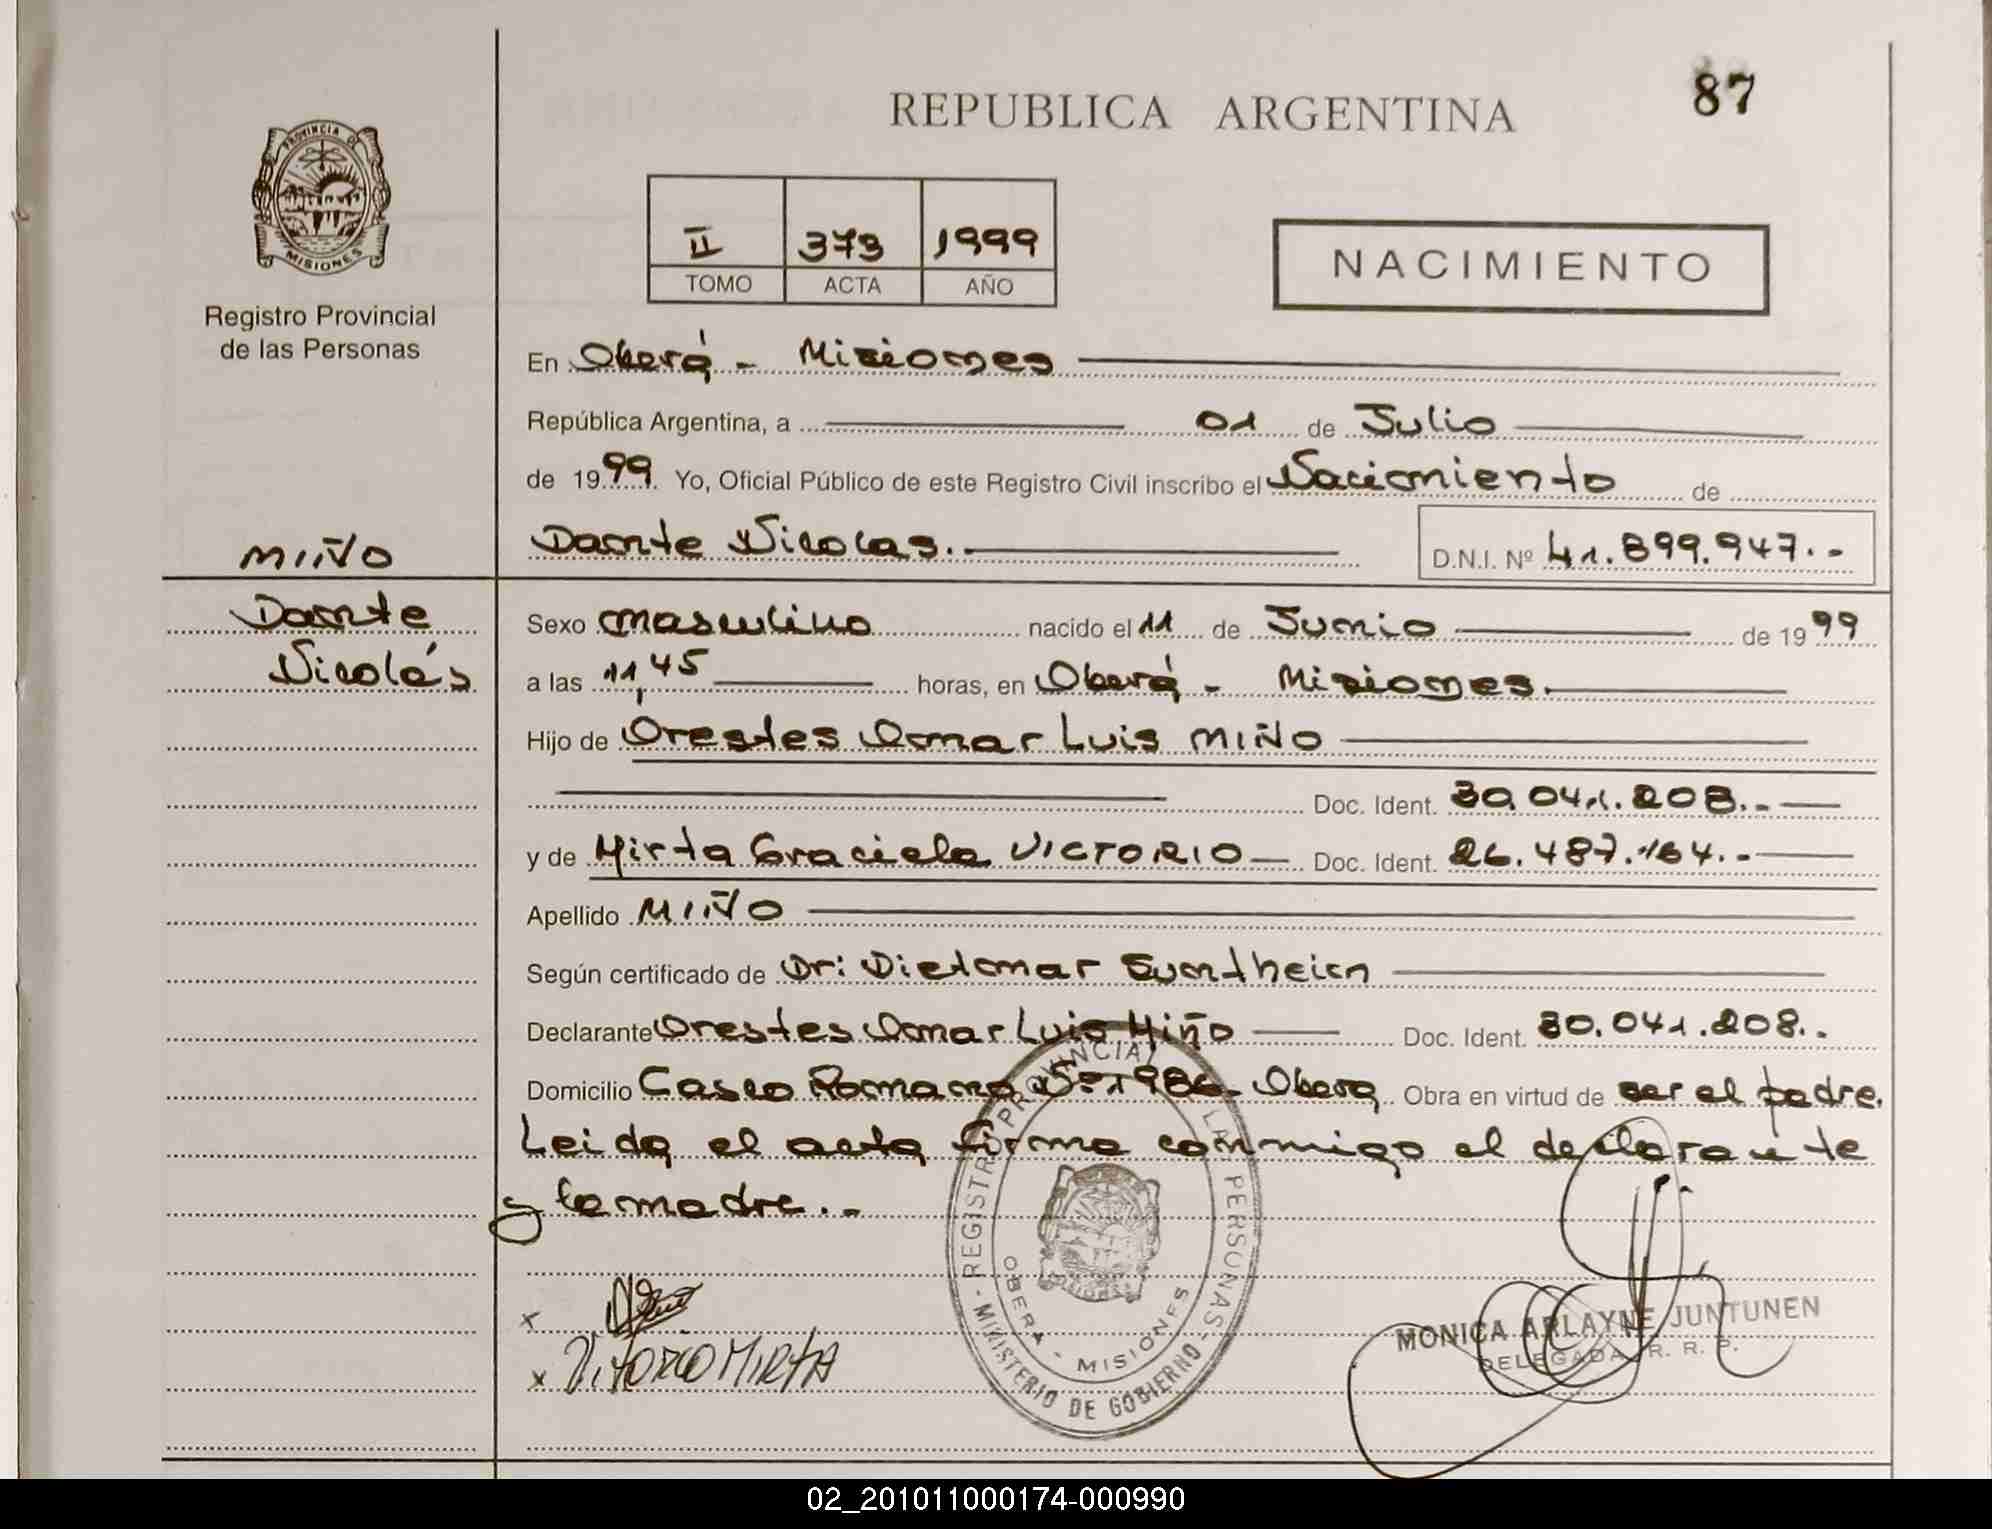 87
REPUBLICA ARGENTINA
PROVINCIA DE
MISIONES
Registro Provincial
de las Personas
II 373 1999
TOMO ACTA AÑO
NACIMIENTO
En Oberá - Misiones
República Argentina, a 01 de Julio
de 1999 Yo, Oficial Público de este Registro Civil inscribo el Nacimiento de
Dante Nicolas.-
D.N.I. Nº 41.899.947.-
MIÑO
Dante
Nicolás
Sexo masculino nacido el 11 de Junio de 1999
a las 11,45 horas, en Oberá - Misiones.
Hijo de Orestes Omar Luis MIÑO
Doc. Ident. 30.041.208.-
y de Mirta Graciela VICTORIO Doc. Ident. 26.487.164.-
Apellido MIÑO
Según certificado de Dr: Dietmar Suntheim
Declarante Orestes Omar Luis Miño Doc. Ident. 30.041.208.-
Domicilio Casco Romano Nº 1986- Obera Obra en virtud de ser el padre.
Leida el acta firma conmigo el declarante
y la madre.-
REGISTRO PROVINCIAL LAS PERSONAS
- MINISTERIO DE GOBIERNO -
OBERA - MISIONES
x
x Vitorio Mirta
MONICA ARLAYNE JUNTUNEN
DELEGADA R. R. P.
02_201011000174-000990